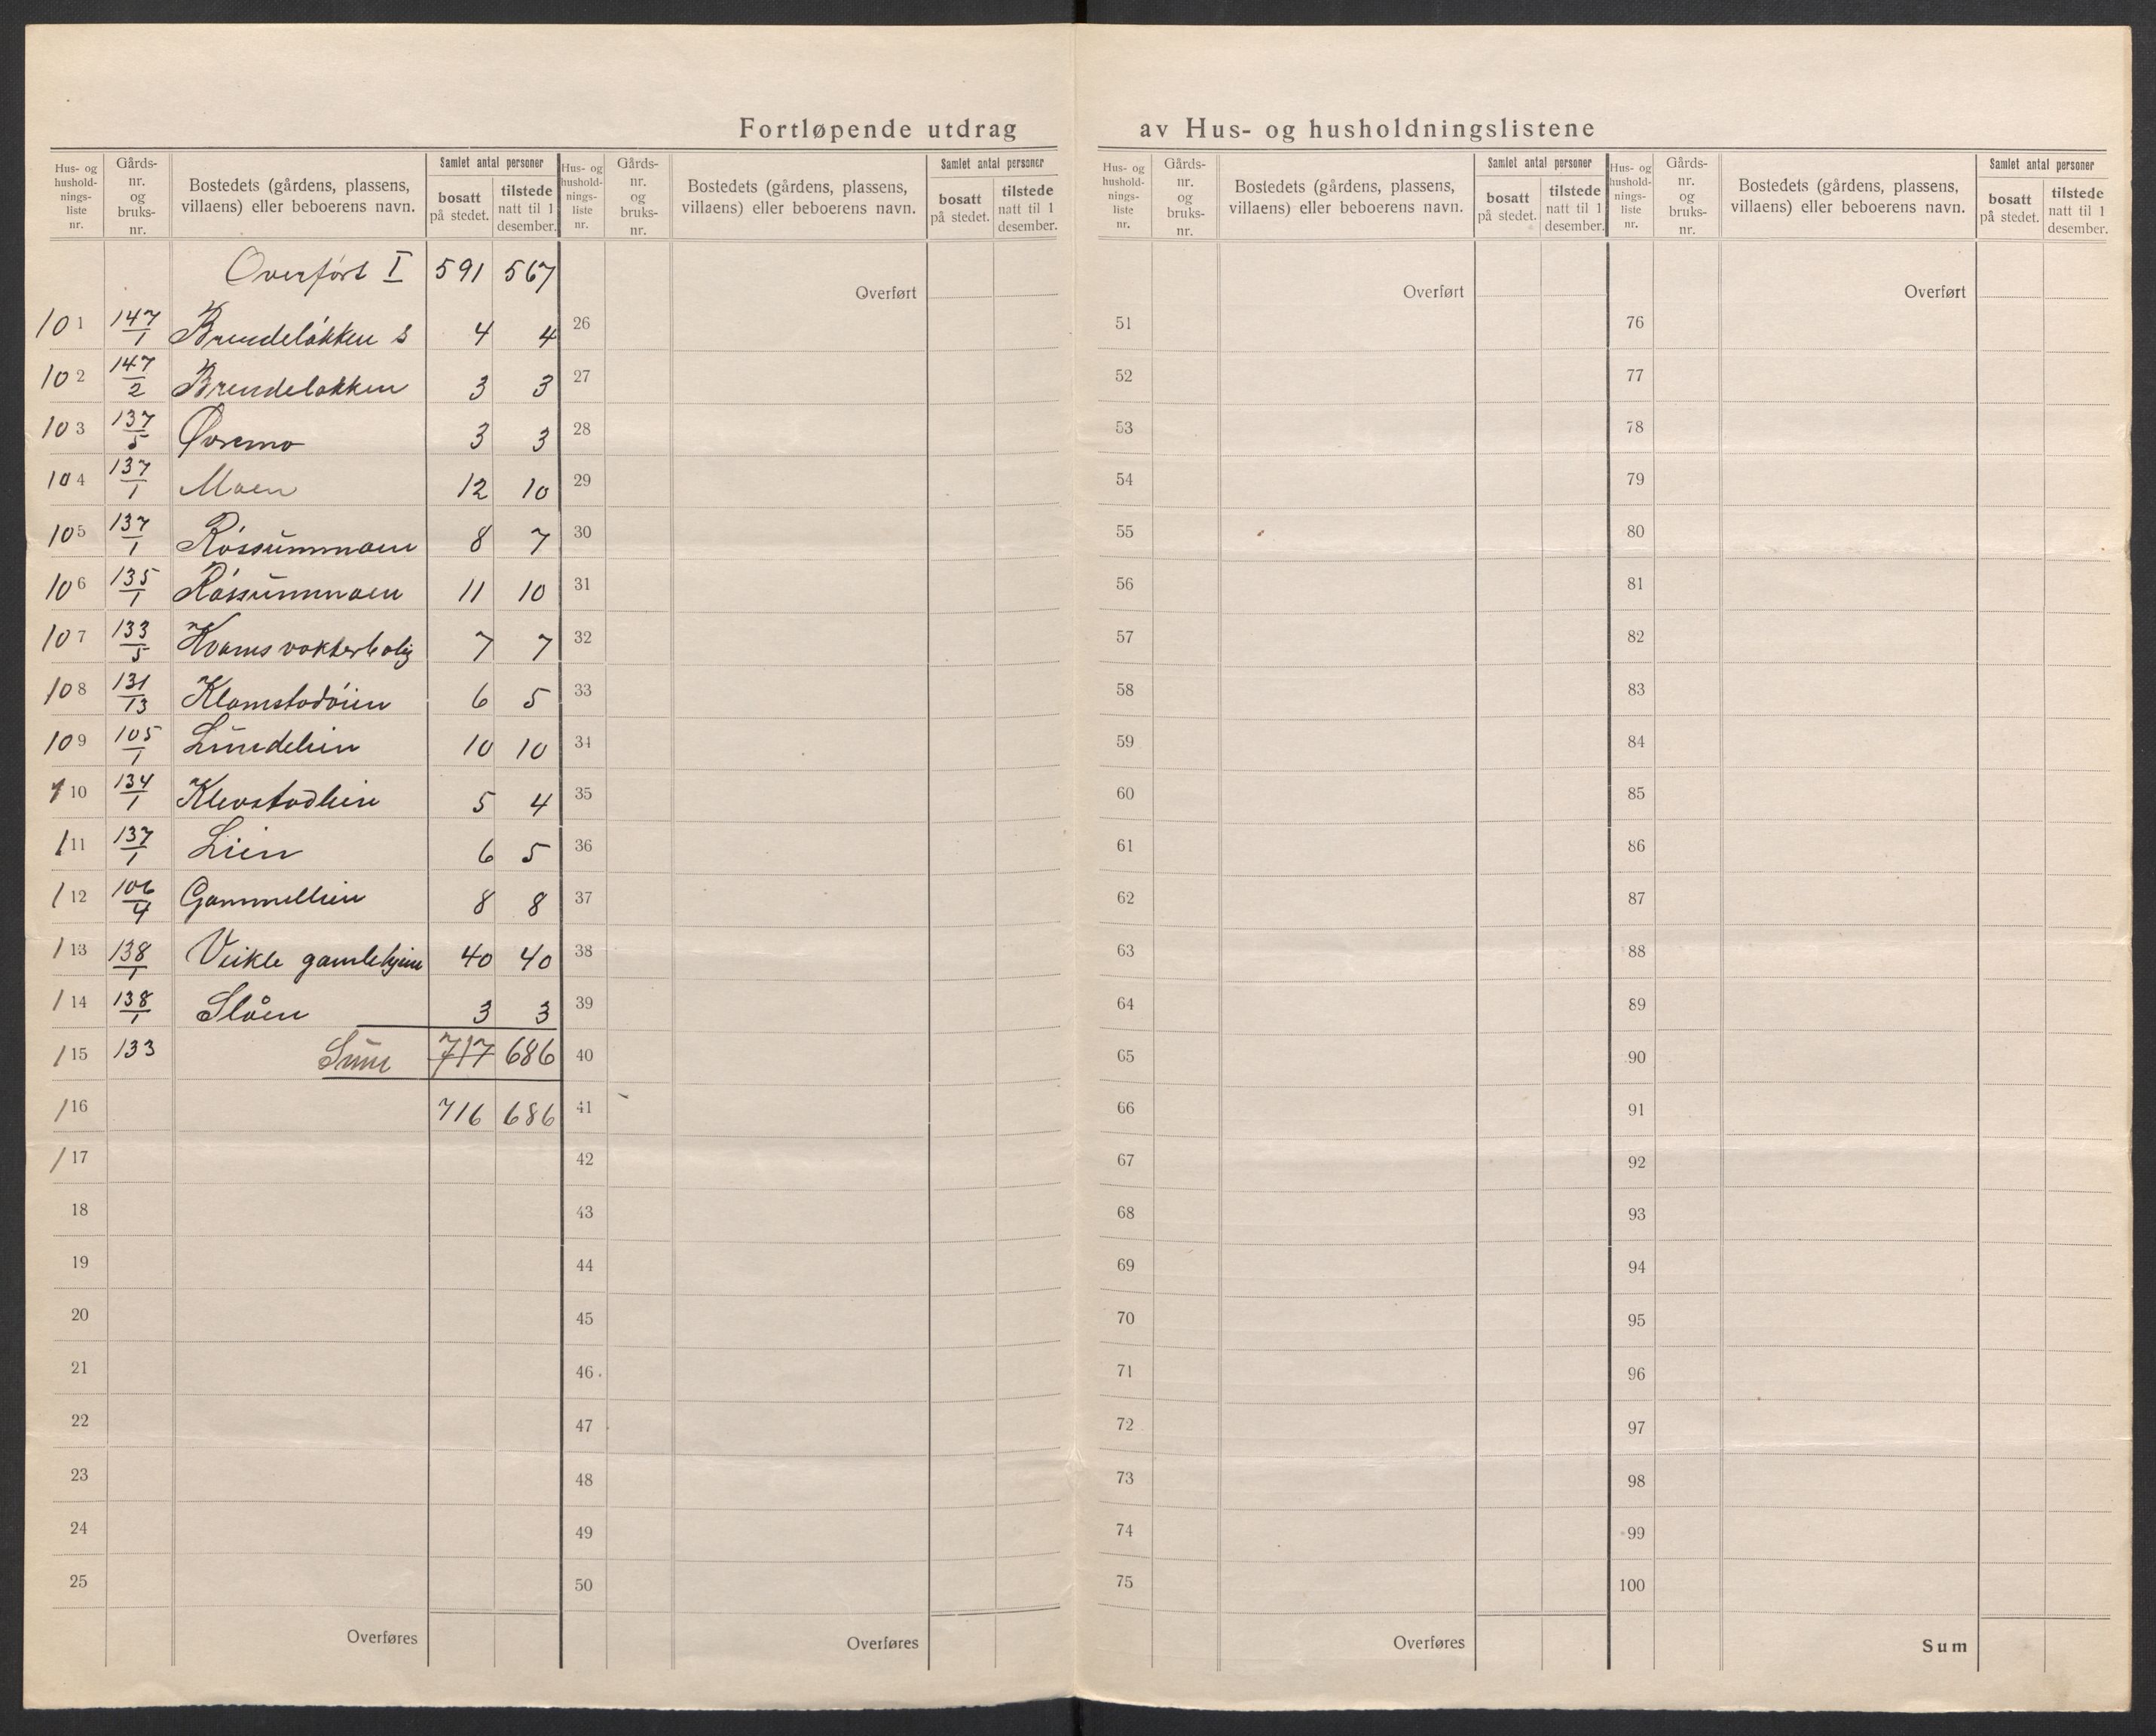 Fortløpende utdrag av Hus- og husholdningslistene
Hus- og hushold- nings- liste nr. | Gårds- nr. og bruks- nr. | Bostedets (gårdens, plassens, villaens) eller beboerens navn. | Samlet antal personer | bosatt på stedet. | tilstede natt til 1 desember.
Hus- og hushold- nings- liste nr. | Gårds- nr. og bruks- nr. | Bostedets (gårdens, plassens, villaens) eller beboerens navn. | Samlet antal personer | bosatt på stedet. | tilstede natt til 1 desember.
Hus- og hushold- nings- liste nr. | Gårds- nr. og bruks- nr. | Bostedets (gårdens, plassens, villaens) eller beboerens navn. | Samlet antal personer | bosatt på stedet. | tilstede natt til 1 desember.
Hus- og hushold- nings- liste nr. | Gårds- nr. og bruks- nr. | Bostedets (gårdens, plassens, villaens) eller beboerens navn. | Samlet antal personer | bosatt på stedet. | tilstede natt til 1 desember.
Overført I 591 567
101 147/1 Brendeløkken s 4 4
102 147/2 Brendeløkken 3 3
103 137/5 Øvremo 3 3
104 137/1 Moen 12 10
105 137/1 Røssummoen 8 7
106 135/1 Røssummoen 11 10
107 133/5 Kvams vokterbolig 7 7
108 131/13 Klomstadøien 6 5
109 105/1 Lundelien 10 10
110 134/1 Klevstadlien 5 4
111 137/1 Lien 6 5
112 106/4 Gammellien 8 8
113 138/1 Veikle gamlehjem 40 40
114 138/1 Slåen 3 3
115 133 Sum 717 686
116 716 686
117
18
19
20
21
22
23
24
25
Overføres
Overført
26
27
28
29
30
31
32
33
34
35
36
37
38
39
40
41
42
43
44
45
46
47
48
49
50
Overføres
Overført
51
52
53
54
55
56
57
58
59
60
61
62
63
64
65
66
67
68
69
70
71
72
73
74
75
Overføres
Overført
76
77
78
79
80
81
82
83
84
85
86
87
88
89
90
91
92
93
94
95
96
97
98
99
100
Sum